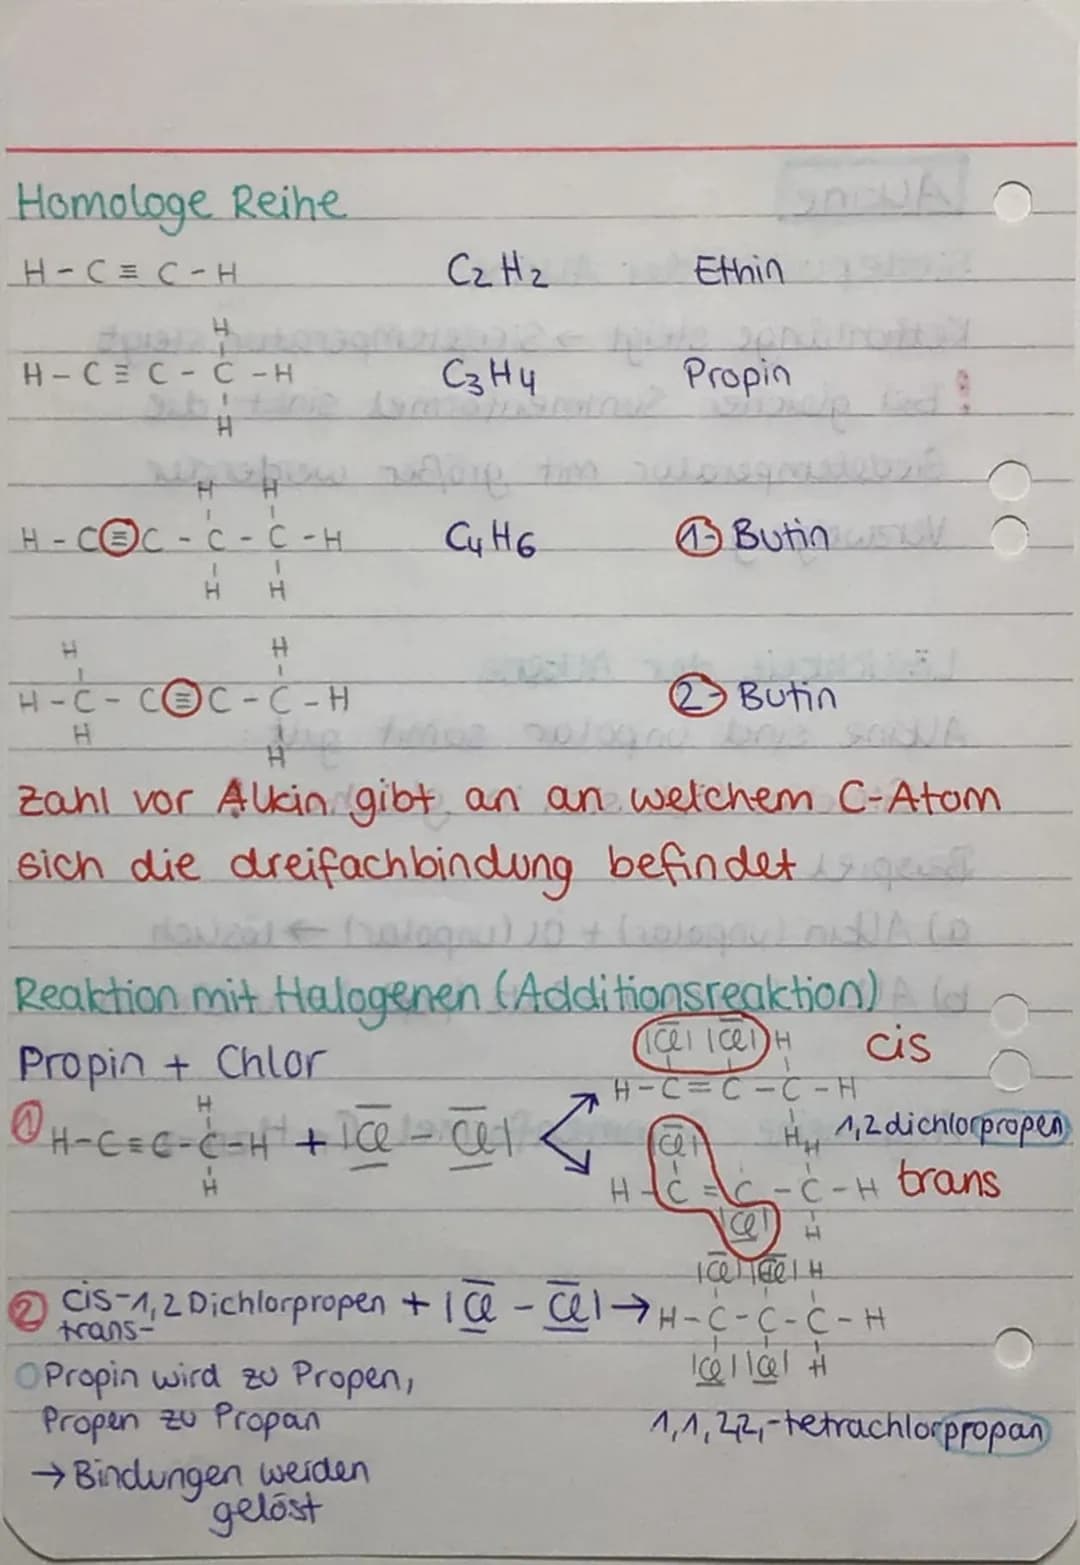 Homologe Reihe
H - C ≡ C - H C2H2 Ethin
H
H - C ≡ C - C - H C3H4 Propin
H
H H
H - C ≡ C - C - C - H C4H6 1- Butin
H H
H H
H - C - C ≡ C - C - H 2- Butin
H H
Zahl vor Alkin gibt an an welchem C-Atom
sich die dreifachbindung befindet
Reaktion mit Halogenen (Additionsreaktion)
Propin + Chlor
|Cl| |Cl| H cis
H - C = C - C - H
H 1,2 dichlorpropen
H
① H-C≡C-C-H + |Cl - Cl|
H
|Cl| H
H - C = C - C - H trans
|Cl| H
|Cl| |Cl| H
② cis-1,2 Dichlorpropen + |Cl - Cl| → H - C - C - C - H
trans-
|Cl| |Cl| H
Propin wird zu Propen,
Propen zu Propan
1,1,2,2,-tetrachlorpropan
→ Bindungen werden
gelöst